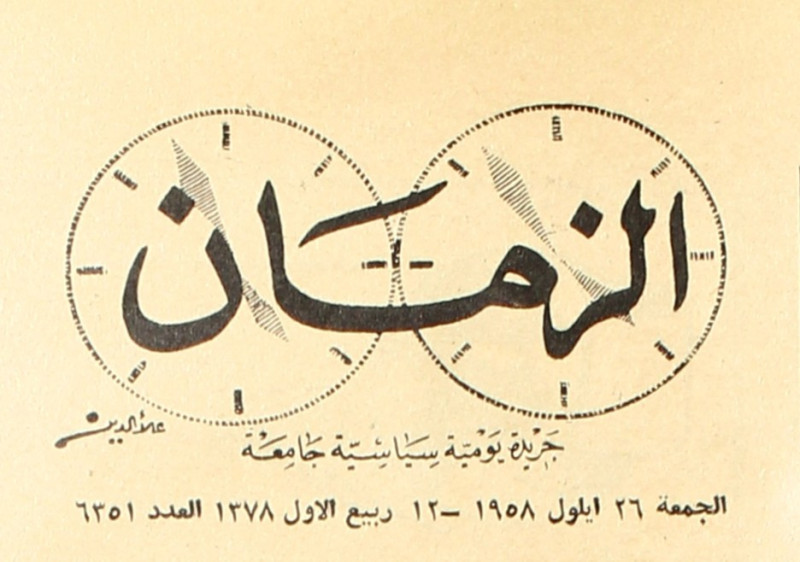 الزمان
علاء الدين
جَرْيدَة يَوْميّة سِيَاسِيّة جَامِعَة
الجمعة ٢٦ ايلول ١٩٥٨ – ١٢ ربيع الاول ١٣٧٨ العدد ٦٣٥١